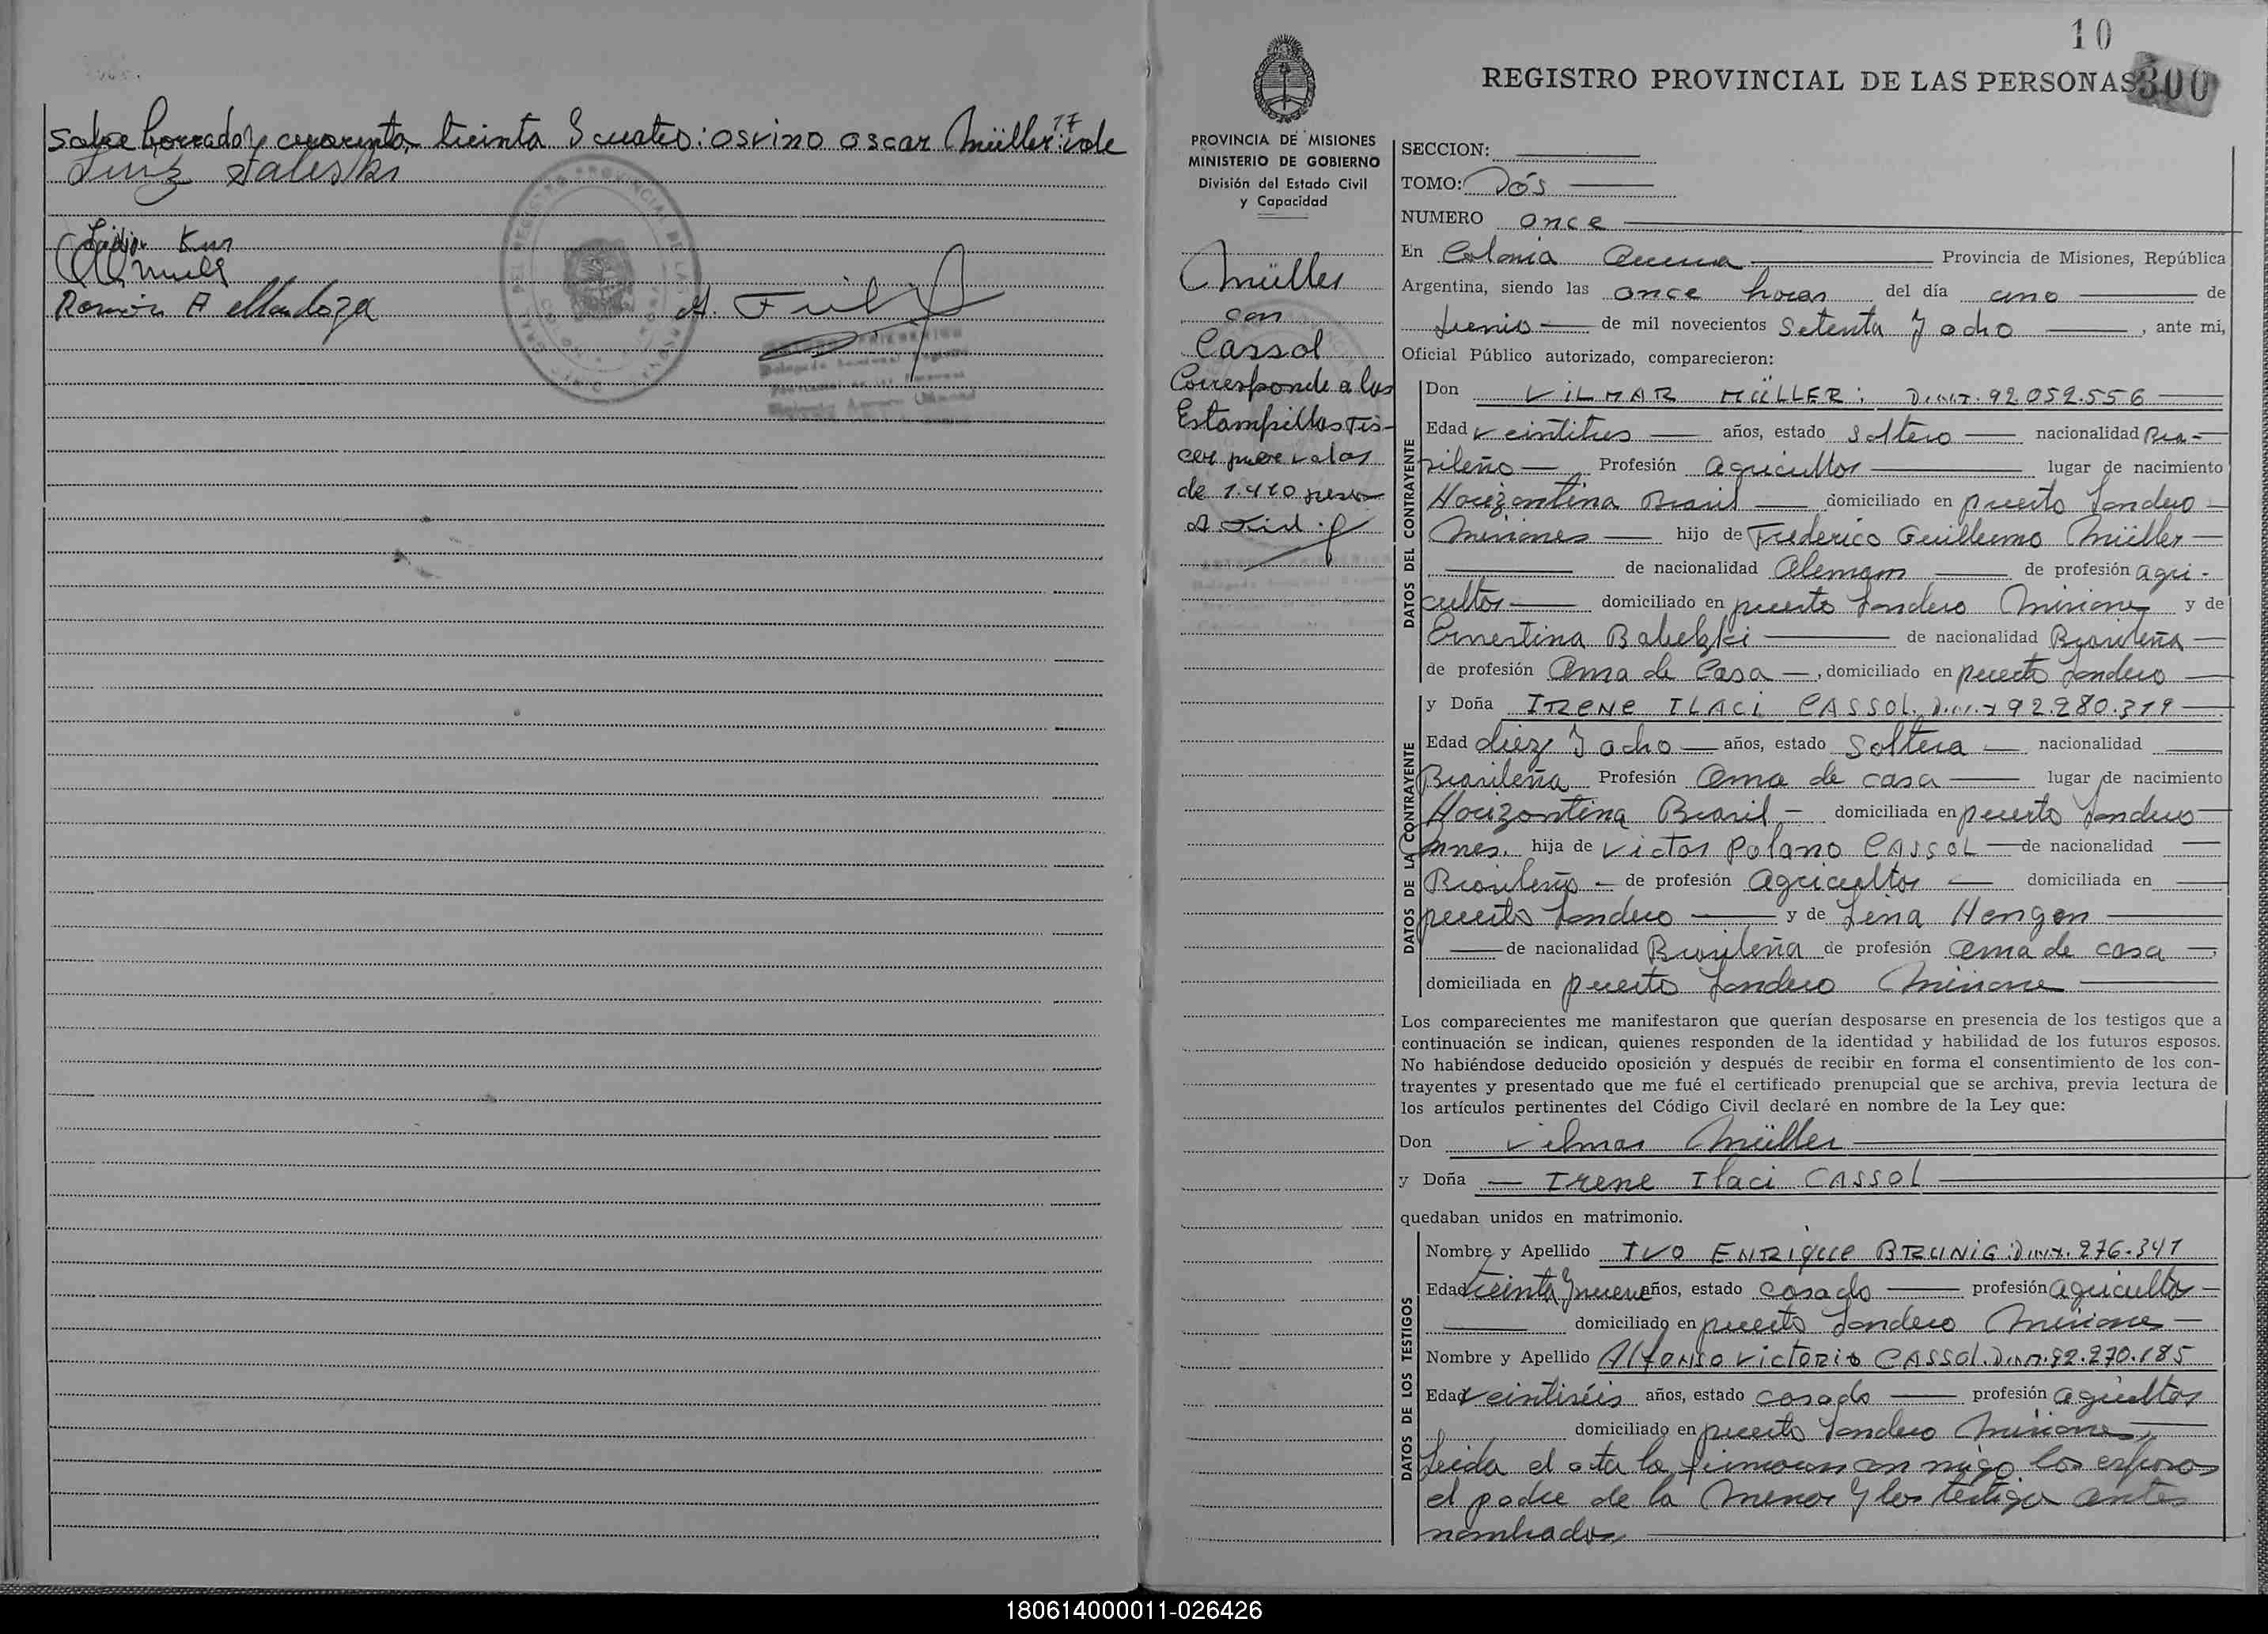 sobre borrado y cuarenta, treinta y cuatro: osvino oscar Müller: 17 vale
Luiz Saleski
Kun
Ramón A Mendoza
10
REGISTRO PROVINCIAL DE LAS PERSONAS 300
PROVINCIA DE MISIONES
MINISTERIO DE GOBIERNO
División del Estado Civil
y Capacidad
Müller
con
Cassol
Corresponde a las
Estampillas Fis-
de 1.410 pesos
SECCION:
TOMO: Dós
NUMERO once
En Colonia Aurora Provincia de Misiones, República
Argentina, siendo las once horas del día uno de
Junio de mil novecientos Setenta y ocho, ante mi,
Oficial Público autorizado, comparecieron:
DATOS DEL CONTRAYENTE
Don VILMAR MÜLLER: D.N.I. 92.052.556
Edad veintitres años, estado Soltero nacionalidad Bra-
sileño Profesión agricultor lugar de nacimiento
Horizontina Brasil domiciliado en puerto Londero
Misiones hijo de Frederico Guillermo Müller
de nacionalidad Aleman de profesión agri-
cultor domiciliado en puerto Londero Misiones y de
Ernestina Babelzki de nacionalidad Brasileña
de profesión Ama de Casa, domiciliado en puerto Londero
DATOS DE LA CONTRAYENTE
y Doña IRENE ILACI CASSOL. D.N.I. 92.280.319
Edad diez y ocho años, estado Soltera nacionalidad
Brasileña Profesión Ama de casa lugar de nacimiento
Horizontina Brasil domiciliada en puerto Londero
Mnes. hija de Victor Polano CASSOL de nacionalidad
Brasileño de profesión Agricultor domiciliada en
puerto Londero y de Lena Hengen
de nacionalidad Brasileña de profesión ama de casa,
domiciliada en puerto Londero Misiones
Los comparecientes me manifestaron que querían desposarse en presencia de los testigos que a
continuación se indican, quienes responden de la identidad y habilidad de los futuros esposos.
No habiéndose deducido oposición y después de recibir en forma el consentimiento de los con-
trayentes y presentado que me fué el certificado prenupcial que se archiva, previa lectura de
los artículos pertinentes del Código Civil declaré en nombre de la Ley que:
Don Vilmar Müller
y Doña Irene Ilaci CASSOL
quedaban unidos en matrimonio.
DATOS DE LOS TESTIGOS
Nombre y Apellido IVO ENRIQUE BRUNIG: D.N.I. 276.341
Edad treinta y nueve años, estado casado profesión agricultor
domiciliado en puerto Londero Misiones
Nombre y Apellido Alfonso Victorio CASSOL. D.N.I. 92.270.185
Edad veintiséis años, estado casado profesión agricultor
domiciliado en puerto Londero Misiones,
Leida el acta la firmaron con migo los esposos
el padre de la menor y los testigos antes
nombrados,
180614000011-026426